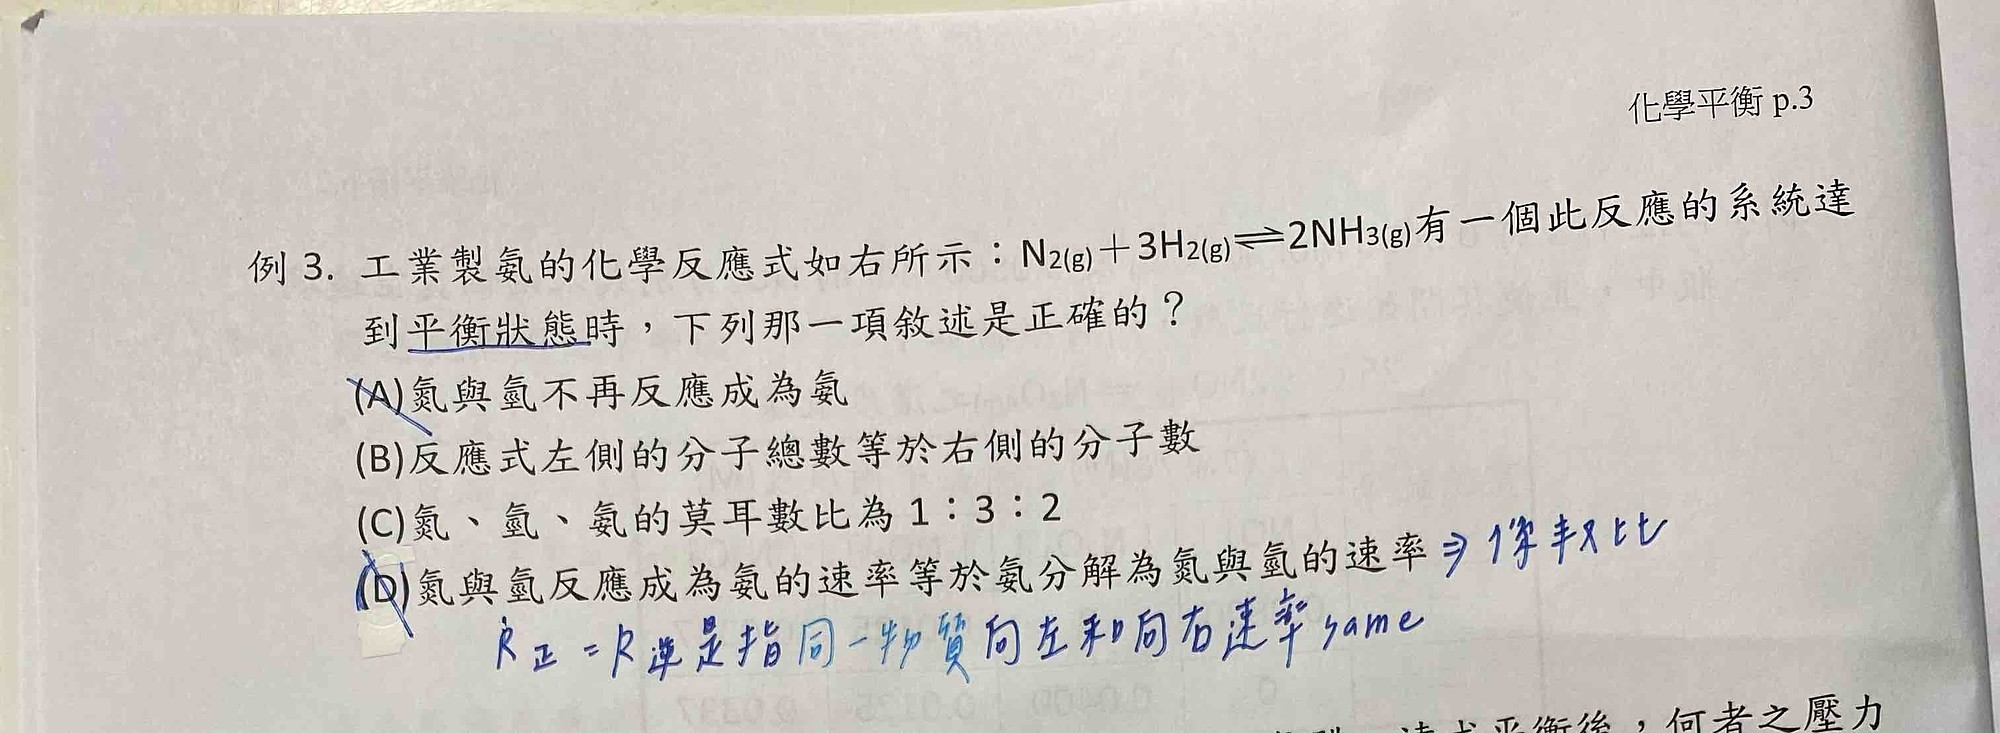 化學平衡 p.3
例 3. 工業製氨的化學反應式如右所示：N2(g)＋3H2(g)⇌2NH3(g)有一個此反應的系統達
到平衡狀態時，下列那一項敘述是正確的？
(A)氮與氫不再反應成為氨
(B)反應式左側的分子總數等於右側的分子數
(C)氮、氫、氨的莫耳數比為 1：3：2
(D)氮與氫反應成為氨的速率等於氨分解為氮與氫的速率⇒係數比
R正=R逆是指同一物質向左和向右速率same
達成平衡後，何者之壓力